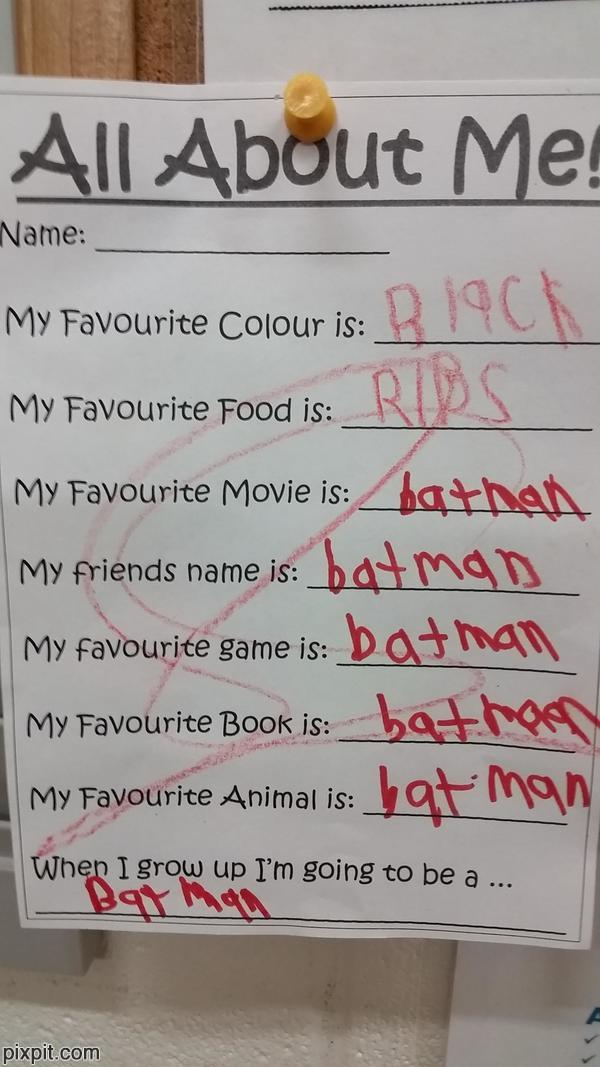 All About Me!
Name:
My Favourite Colour is: Black
My Favourite Food is: RIBS
My Favourite Movie is: batman
My friends name is: batman
My favourite game is: batman
My Favourite Book is: batman
My Favourite Animal is: bat man
When I grow up I'm going to be a ...
Bat Man
pixpit.com